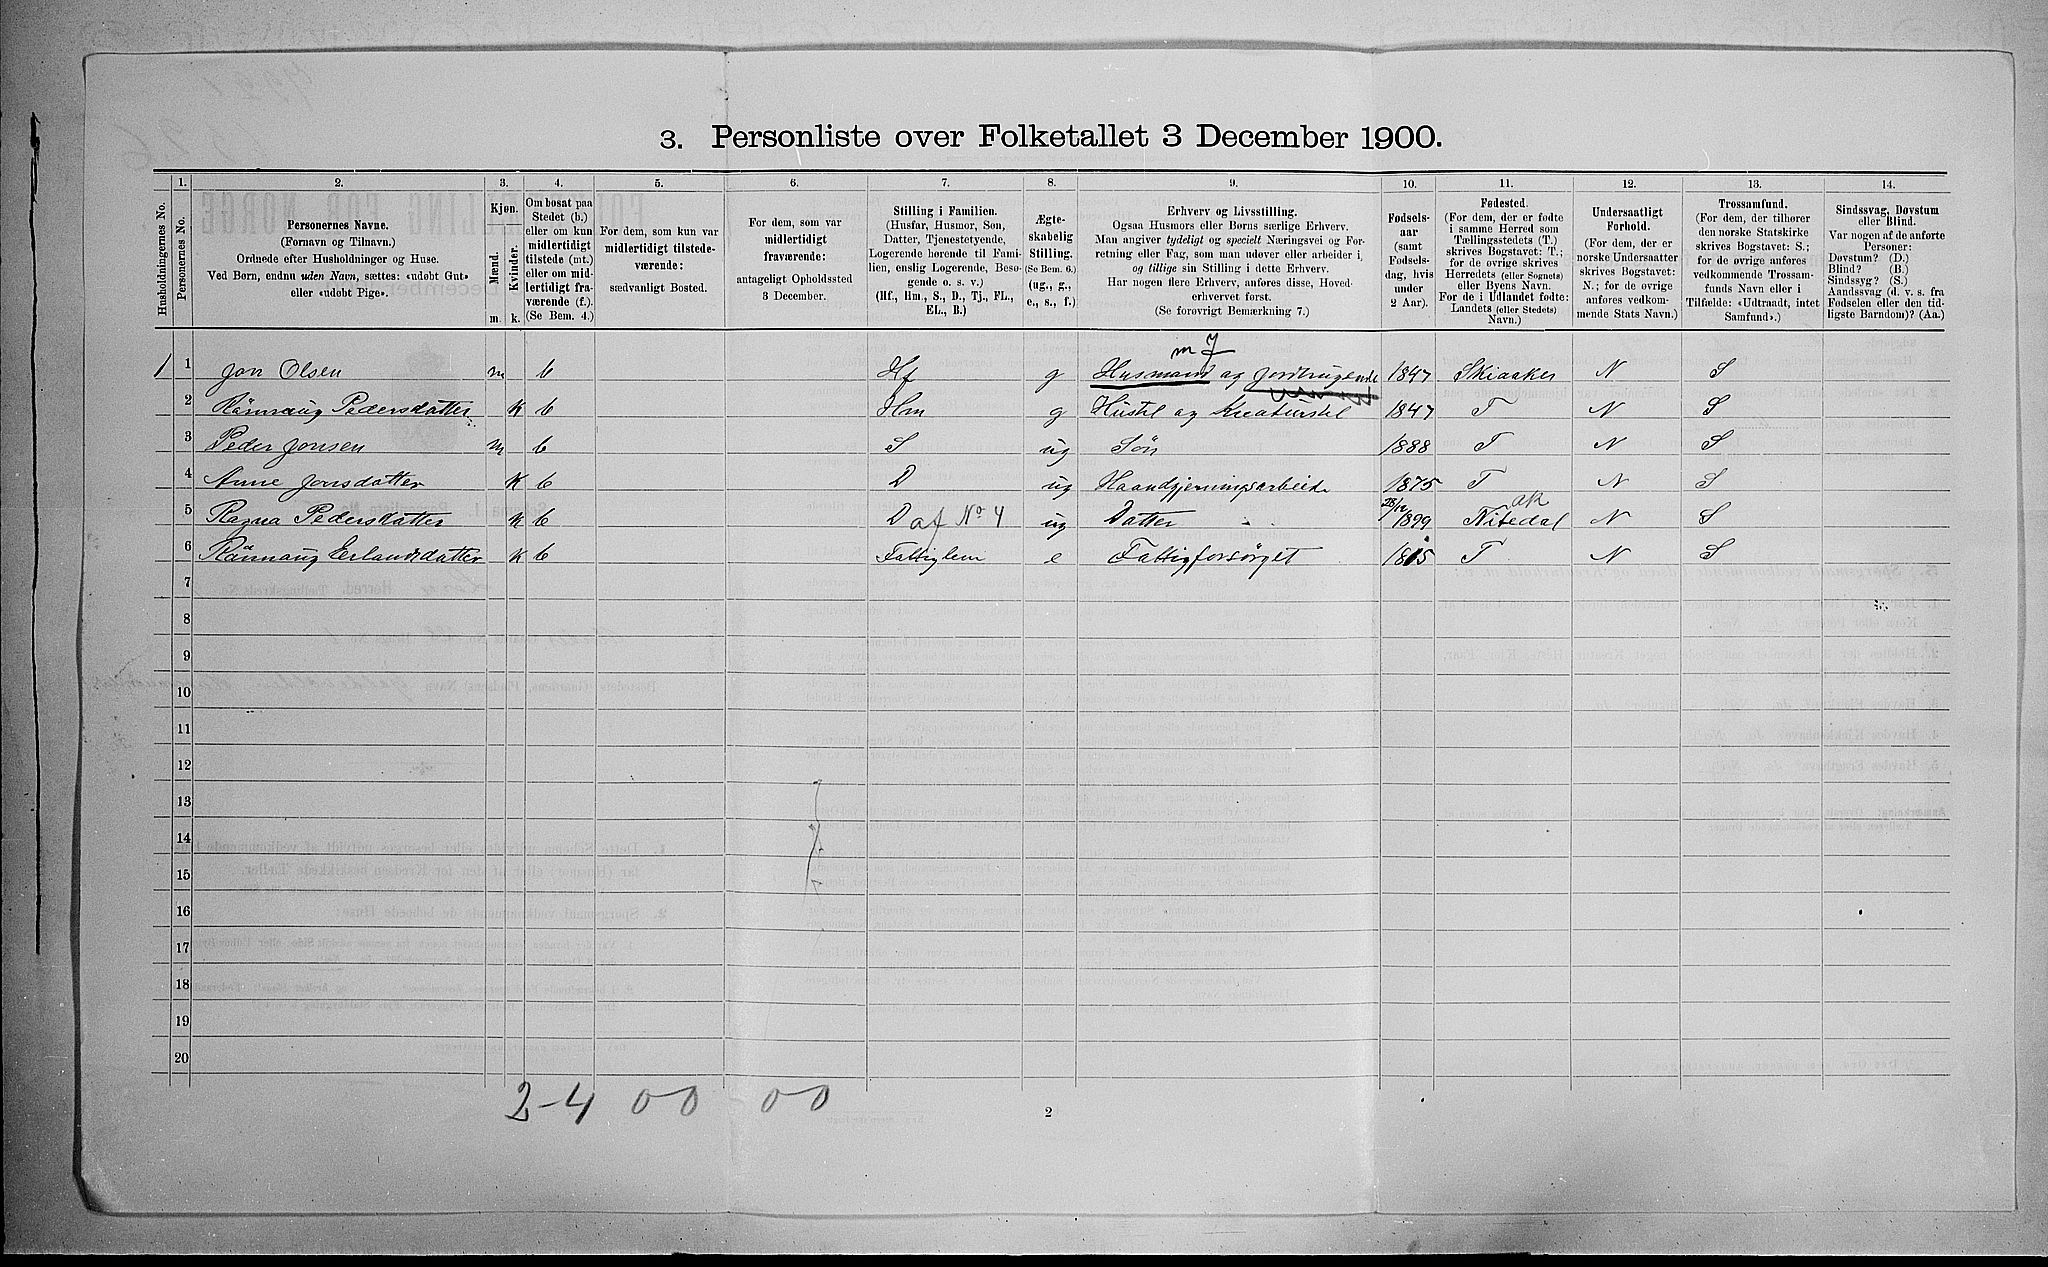 3. Personliste over Folketallet 3 December 1900.
1. 2. 3. 4. 5. 6. 7. 8. 9. 10. 11. 12. 13. 14.
Husholdningernes No.
Personernes No.
Personernes Navne.
(Fornavn og Tilnavn.)
Ordnede efter Husholdninger og Huse.
Ved Børn, endnu uden Navn, sættes: «udøbt Gut»
eller «udøbt Pige».
Kjøn.
Mænd.
Kvinder.
m. k.
Om bosat paa
Stedet (b.)
eller om kun
midlertidigt
tilstede (mt.)
eller om mid-
lertidigt fra-
værende (f.).
(Se Bem. 4.)
For dem, som kun var
midlertidigt tilstede-
værende:
sædvanligt Bosted.
For dem, som var
midlertidigt
fraværende:
antageligt Opholdssted
3 December.
Stilling i Familien.
(Husfar, Husmor, Søn,
Datter, Tjenestetyende,
Logerende hørende til Fami-
lien, enslig Logerende, Besø-
gende o. s. v.)
(Hf., Hm., S., D., Tj., FL.,
EL., B.)
Ægte-
skabelig
Stilling.
(Se Bem. 6.)
(ug., g.,
e., s., f.)
Erhverv og Livsstilling.
Ogsaa Husmors eller Børns særlige Erhverv.
Man angiver tydeligt og specielt Næringsvei og For-
retning eller Fag, som man udøver eller arbeider i,
og tillige sin Stilling i dette Erhverv.
Har nogen flere Erhverv, anføres disse, Hoved-
erhvervet først.
(Se forøvrigt Bemærkning 7.)
Fødsels-
aar
(samt
Fødsels-
dag, hvis
under
2 Aar).
Fødested.
(For dem, der er fødte
i samme Herred som
Tællingsstedets (T.)
skrives Bogstavet: T.;
for de øvrige skrives
Herredets (eller Sognets)
eller Byens Navn.
For de i Udlandet fødte:
Landets (eller Stedets)
Navn.)
Undersaatligt
Forhold.
(For dem, der er
norske Undersaatter
skrives Bogstavet:
N.; for de øvrige
anføres vedkom-
mende Stats Navn.)
Trossamfund.
(For dem, der tilhører
den norske Statskirke
skrives Bogstavet: S.;
for de øvrige anføres
vedkommende Trossam-
funds Navn eller i
Tilfælde: «Udtraadt, intet
Samfund».)
Sindssvag, Døvstum
eller Blind.
Var nogen af de anførte
Personer:
Døvstum? (D.)
Blind? (B.)
Sindssyg? (S.)
Aandssvag (d. v. s. fra
Fødselen eller den tid-
ligste Barndom)? (Aa.)
1 1 Jon Olsen m b Hf g Husmand og Jordbrugende 1847 Skiaaker N S
2 Rønnaug Pedersdatter K b Hm g Hustel og Kreaturstel 1847 T N S
3 Peder Jonsen m b S ug Søn 1888 T N S
4 Anne Jonsdatter K b D ug Haandgjerningsarbeide 1875 T N S
5 Ragna Pedersdatter K b D af No 4 ug Datter 28/12 1899 Nitedal N S
6 Rønnaug Erlandsdatter K b Fattiglem e Fattigforsørget 1815 T N S
7
8
9
10
11
12
13
14
15
16
17
18
19
20
2-4 00 00
2